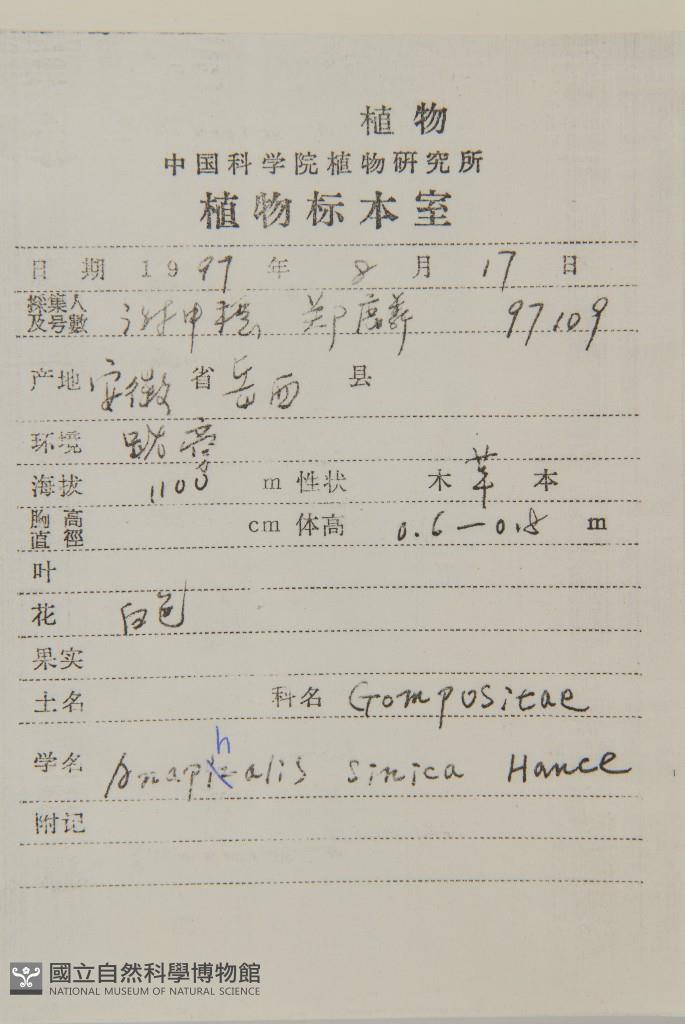 植物
中国科学院植物研究所
植物标本室
日期 1997年 8月 17日
採集人及号數 郑 97109
产地 安徽省 岳西 县
环境 路旁
海拔 1100 m 性状 木 草 本
胸高直徑 cm 体高 0.6—0.8 m
叶
花 白色
果实
土名 科名 Gompositae
学名 Anaphalis sinica Hance
附记
國立自然科學博物館
NATIONAL MUSEUM OF NATURAL SCIENCE